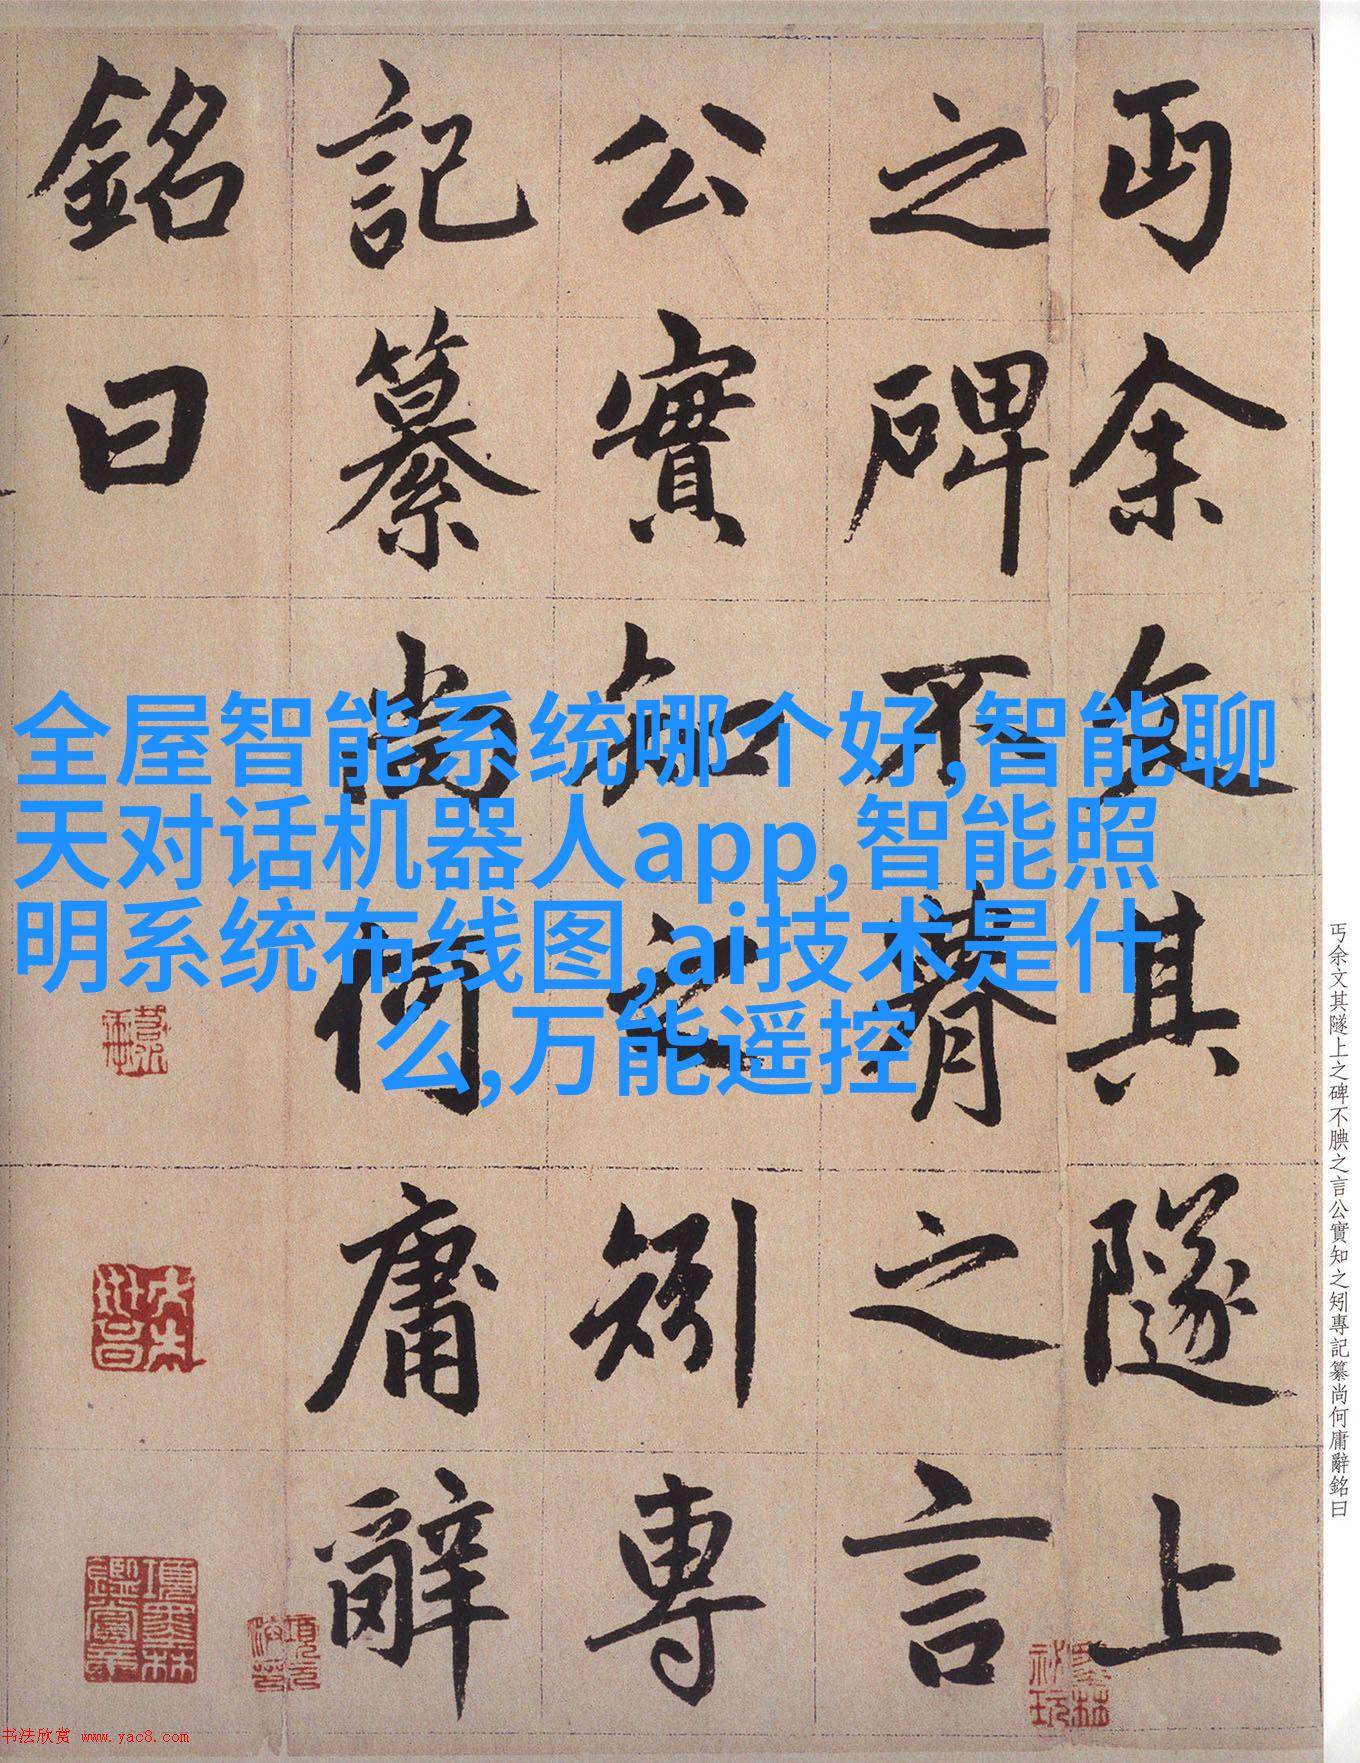 丐余文其隧上
之碑不腆之言
公實知之矧專
記纂尚何庸辭
銘曰
全屋智能系统哪个好,智能聊
天对话机器人app,智能照
明系统布线图,ai技术是什
么,万能遥控
丐余文其隧上之碑不腆之言公實知之矧專記纂尚何庸辭銘曰
項墨林鑑賞章
墨林祕玩
书法欣赏 www.yac8.com